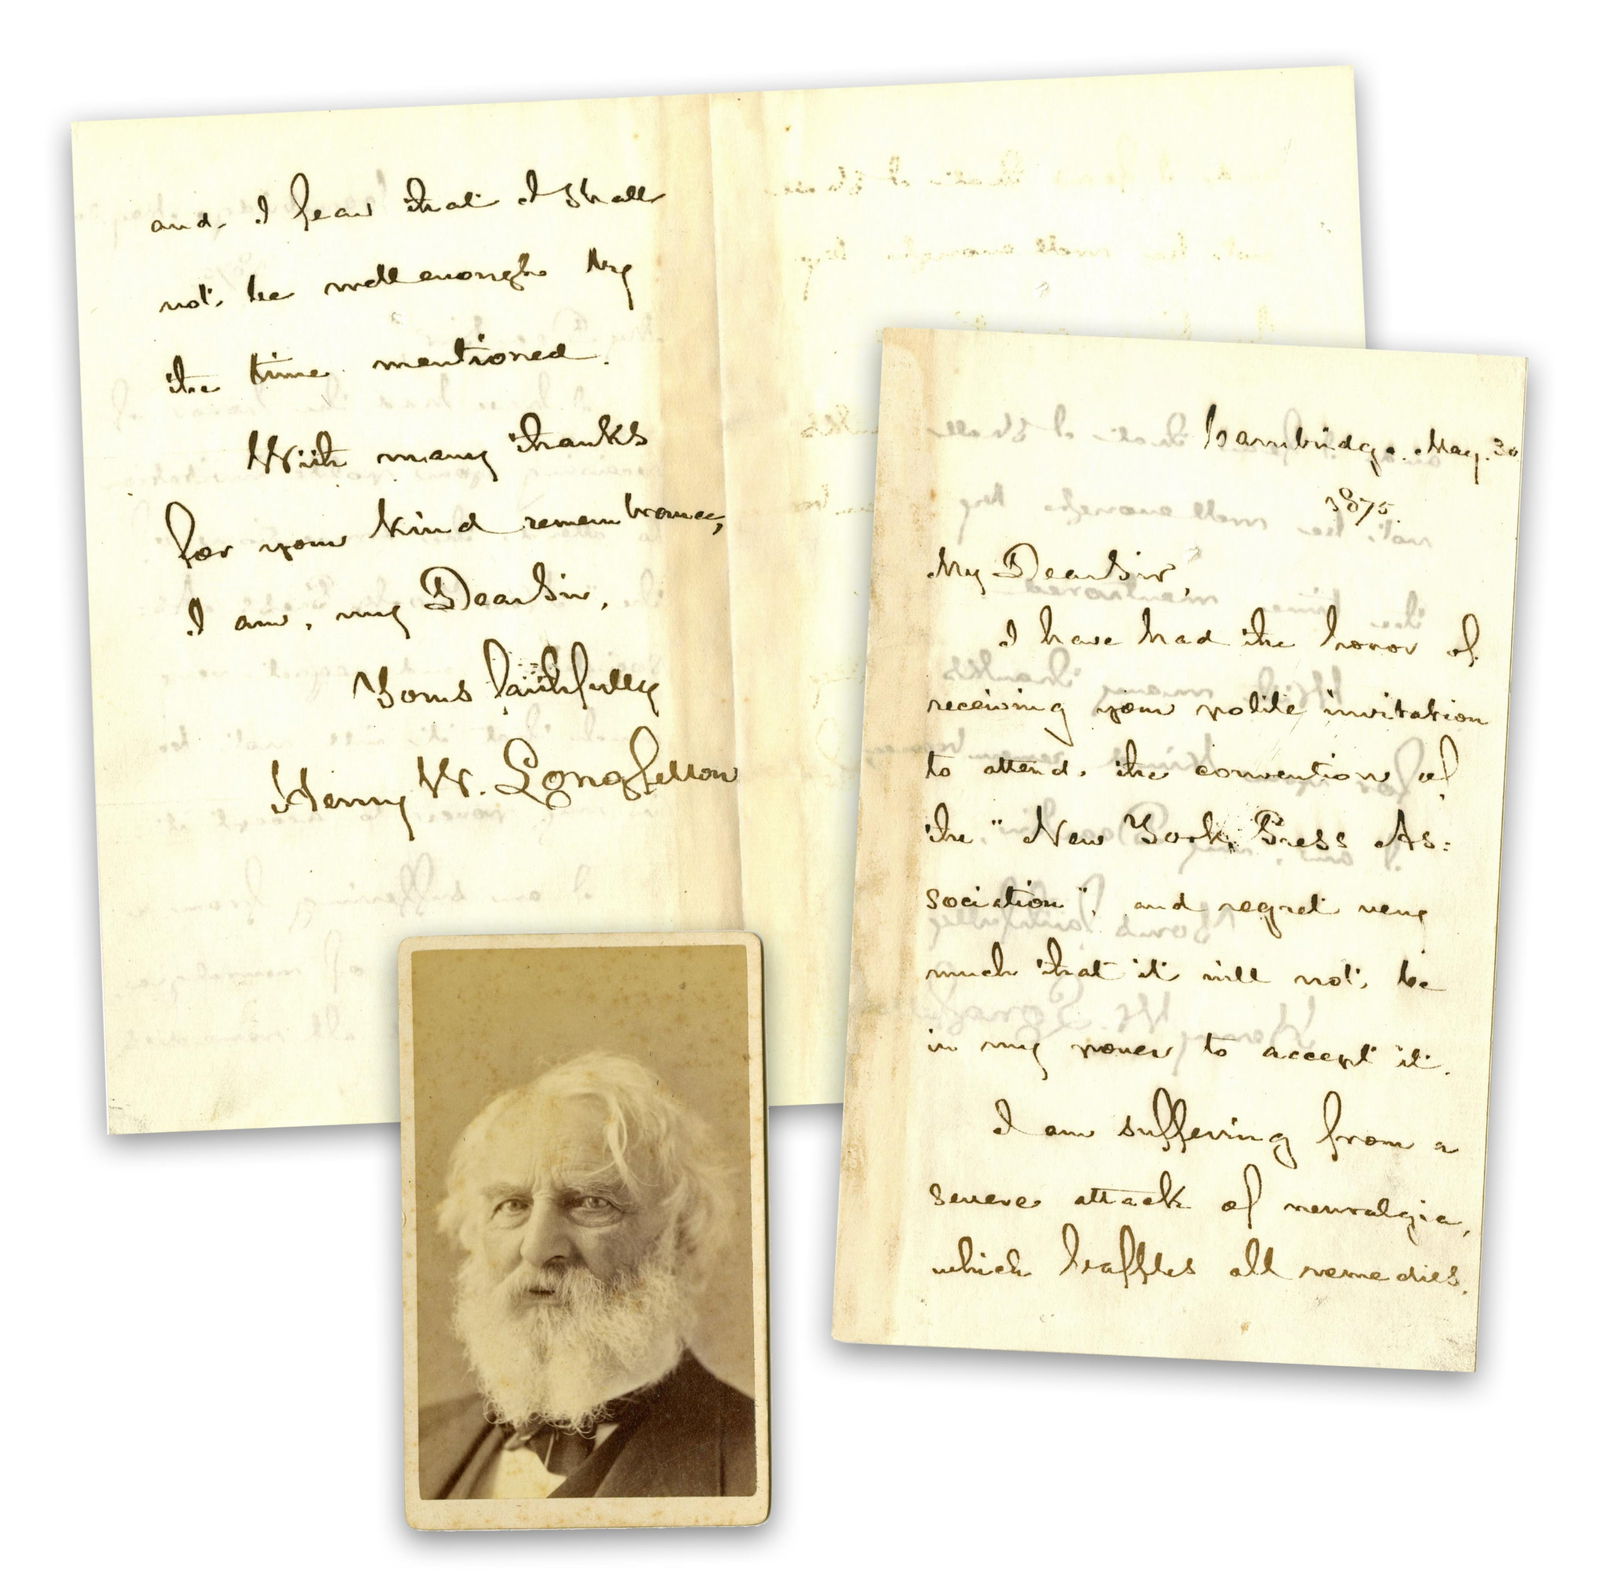 Cambridge. May. 30
1875.
My Dear Sir,
I have had the honor of
receiving your polite invitation
to attend the convention of
the "New York Press As=
sociation", and regret very
much that it will not be
in my power to accept it.
I am suffering from a
severe attack of neuralgia,
which baffles all remedies,
and I fear that I shall
not be well enough by
the time mentioned.
With many thanks
for your kind remembrance,
I am, my Dear Sir,
Yours faithfully
Henry W. Longfellow